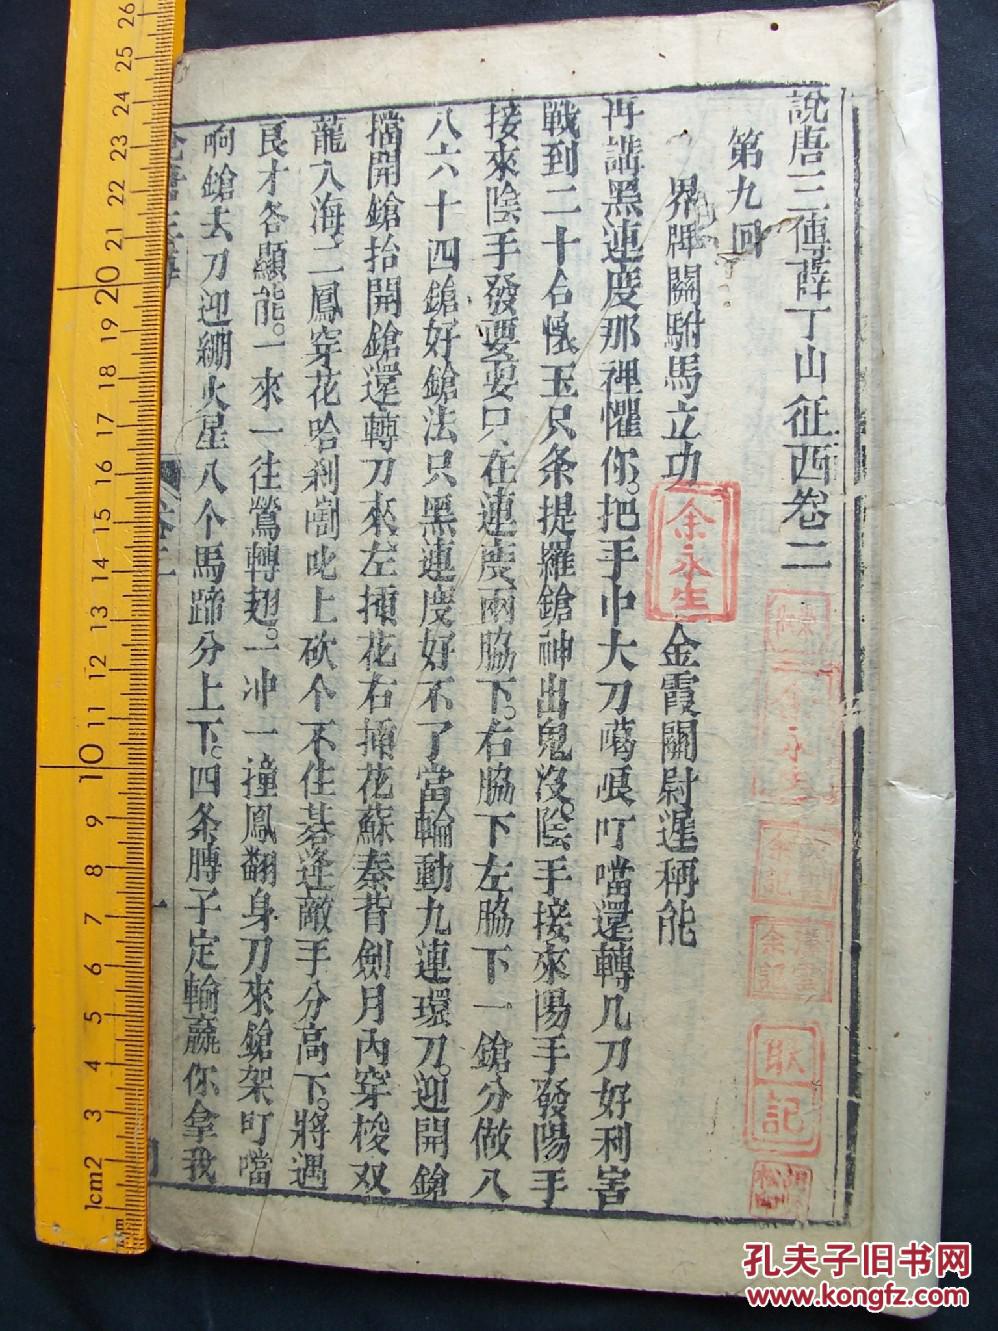 說唐三傳薛丁山征西卷二
第九回
界牌關駙馬立功 金霞關尉遲称能
再講黑連度那裡懼你。把手中大刀噶哌叮噹還轉几刀好利害
戰到二十合懷玉只条提羅鎗神出鬼沒。陰手接來陽手發陽手
接來陰手發要要只在連度兩脇下。右脇下左脇下一鎗分做八
八六十四鎗好鎗法只黑連度好不了當輪動九連環刀。迎開鎗
擋開鎗抬開鎗還轉刀來左揷花右揷花蘇秦背劍月內穿梭双
龍入海二鳳穿花哈刹 叱上砍个不住碁逢敵手分高下。將遇
良才各顯能。一來一往鶯轉翅。一冲一撞鳳翻身刀來鎗架叮噹
响鎗去刀迎綳火星八个馬蹄分上下。四条膊子定輸贏你拿我
余永生
余永生
余記
余記
耿記
26
25
24
23
22
21
20
19
18
17
16
15
14
13
12
11
10
9
8
7
6
5
4
3
2
1cm
孔夫子旧书网
www.kongfz.com